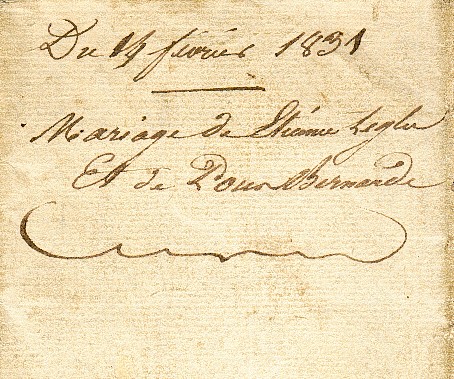 Du 14 février 1831
Mariage de Etienne
Et de Bernarde